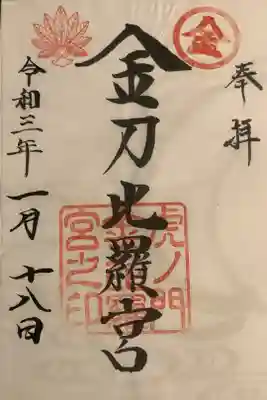 奉拝
金
金刀比羅宮
虎ノ門
宮之印
令和三年一月十八日